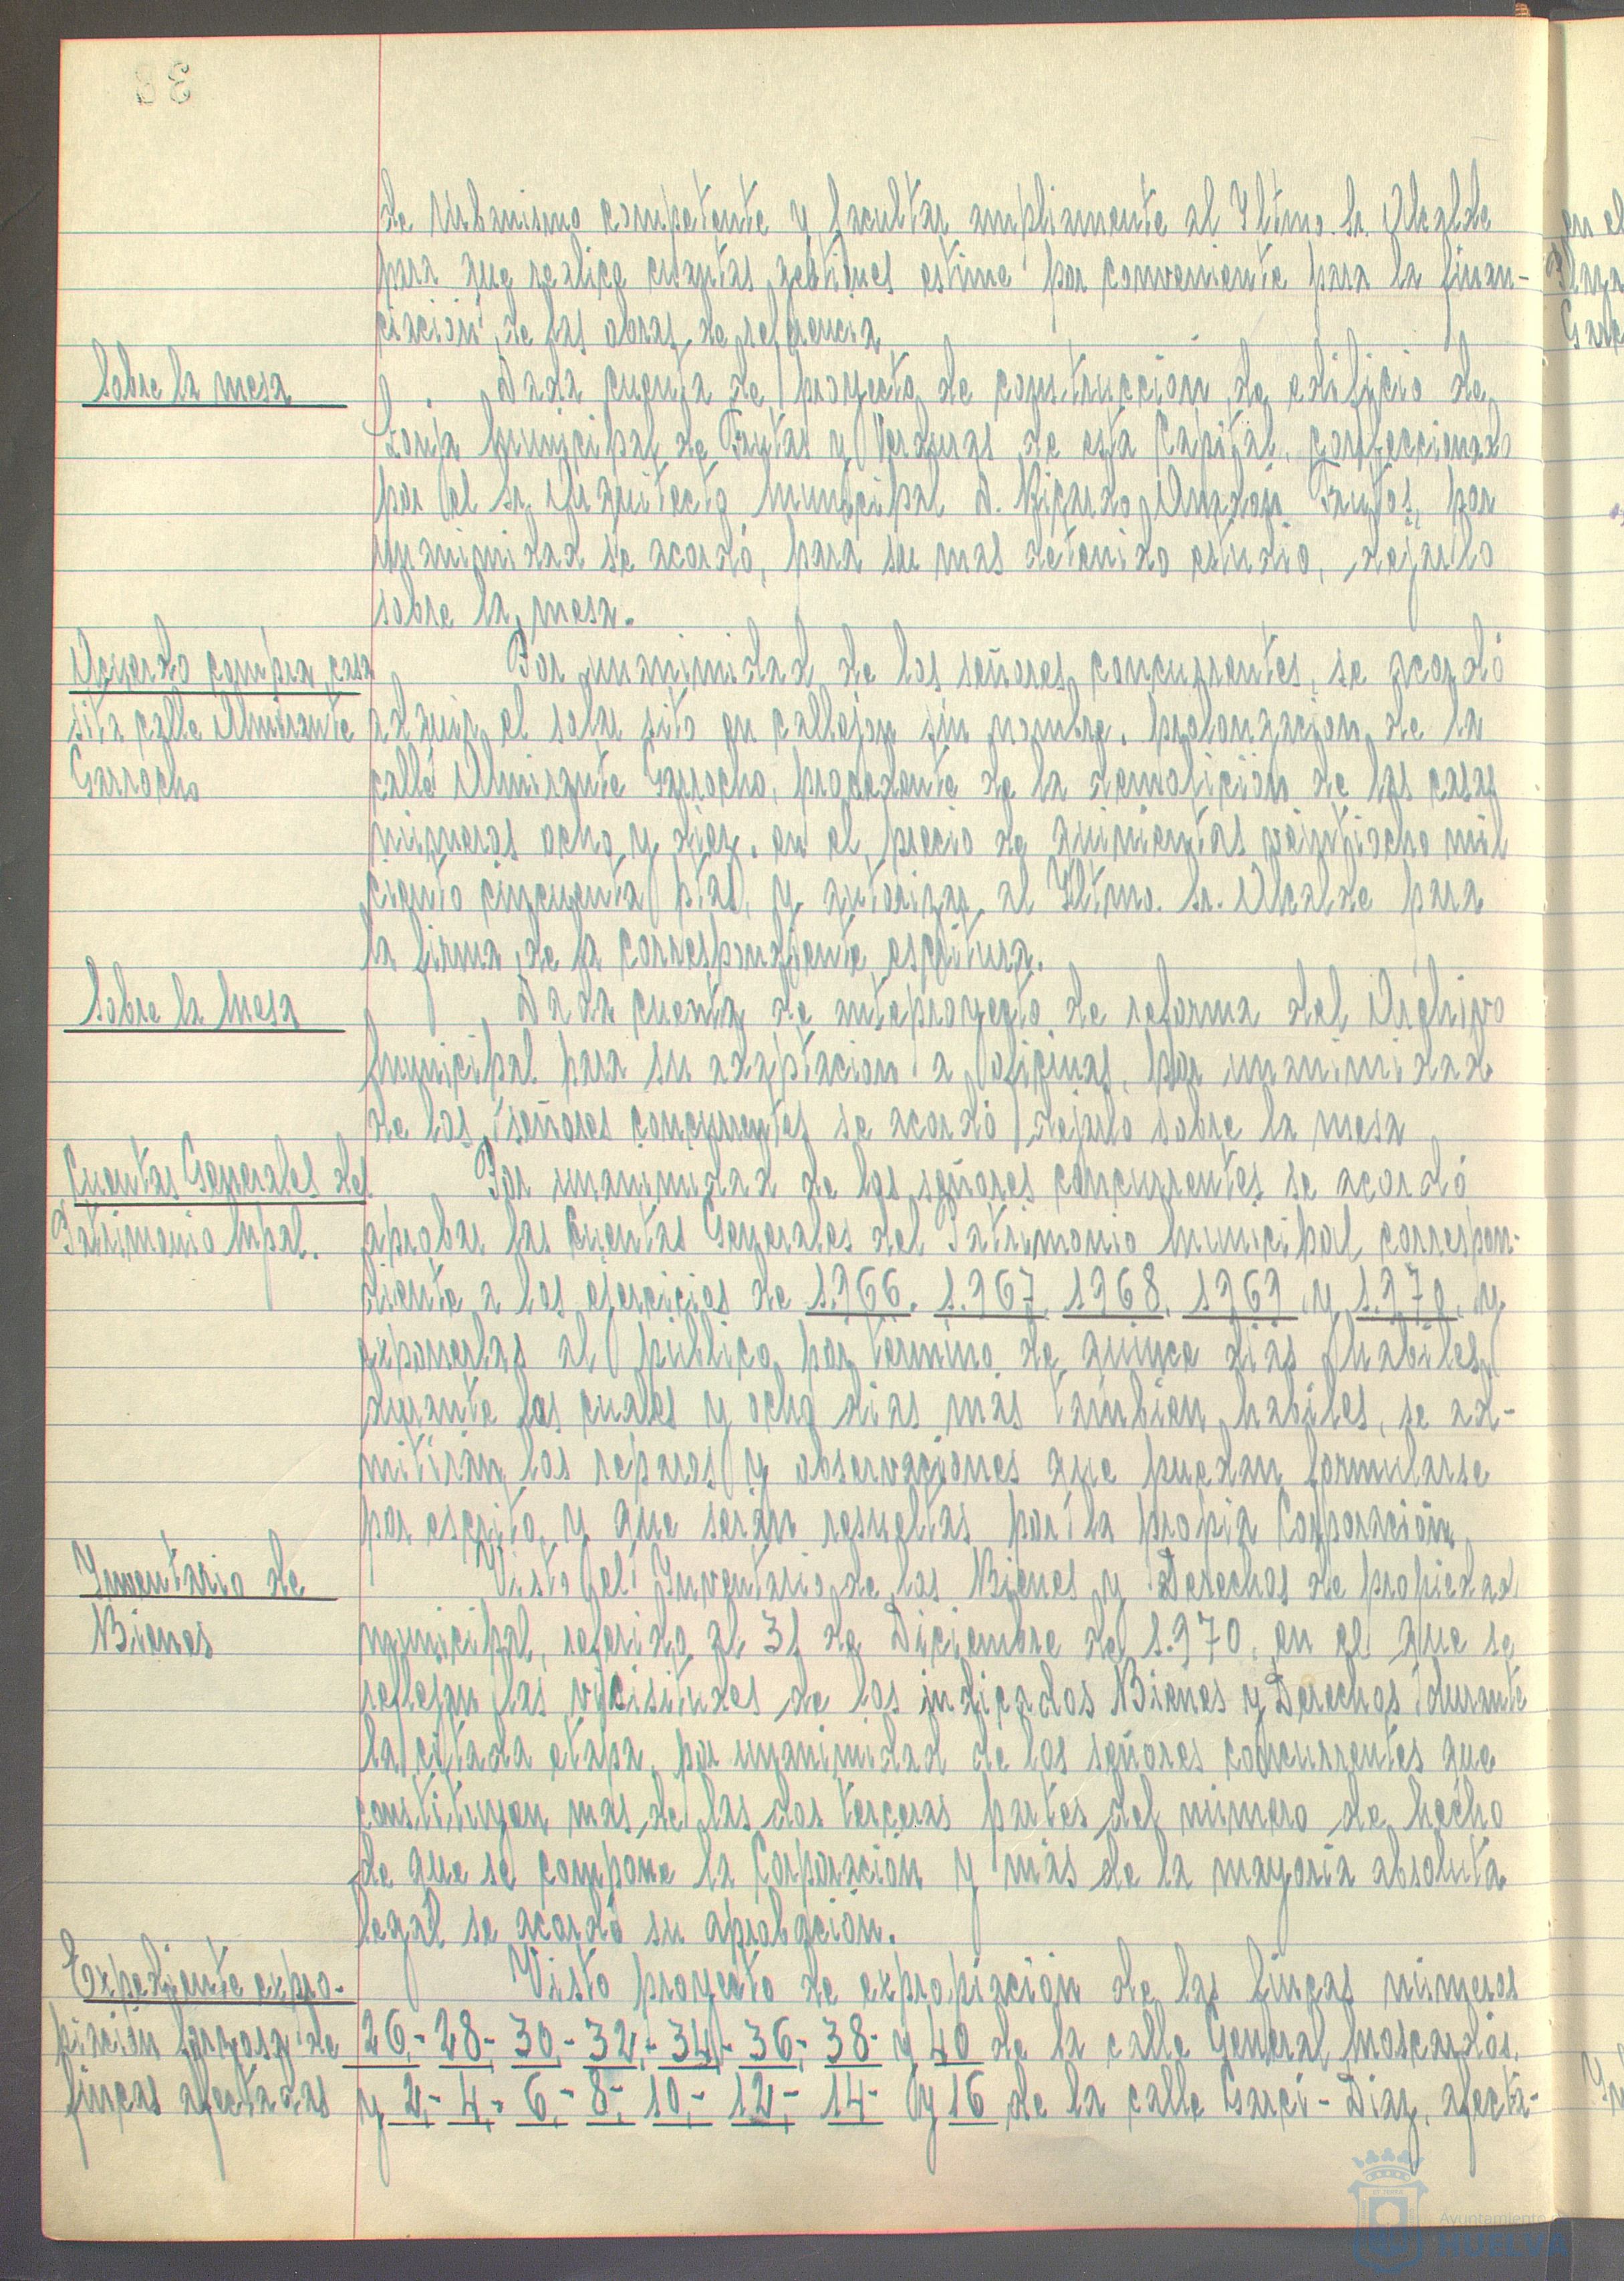 de Urbanismo competente y facultar ampliamente al Iltmo. Sr. Alcalde
para que realice cuantas gestiones estime por conveniente para la finan-
ciación de las obras de referencia
Sobre la mesa
Dada cuenta del proyecto de construcción de edificio de
Lonja Municipal de Frutas y Verduras de esta Capital, confeccionado
por el Sr. Arquitecto Municipal D. Ricardo Anadón Frutos, por
unanimidad se acordó, para su mas detenido estudio, dejarlo
sobre la mesa.
Acuerdo compra casa
sita calle Almirante
Garrocho
Por unanimidad de los señores concurrentes, se acordó
adquirir el solar sito en callejon sin nombre, prolongación de la
calle Almirante Garrocho, procedente de la demolición de las casas
números ocho y diez, en el precio de quinientas veintiocho mil
ciento cincuenta ptas, y autorizar al Iltmo. Sr. Alcalde para
la firma de la correspondiente escritura.
Sobre la Mesa
Dada cuenta de anteproyecto de reforma del Archivo
Municipal para su adaptacion a oficinas, por unanimidad
de los señores concurrentes se acordó dejarlo sobre la mesa
Cuentas Generales del
Patrimonio Mpal.
Por unanimidad de los señores concurrentes se acordó
aprobar las Cuentas Generales del Patrimonio Municipal correspon-
diente a los ejercicios de 1.966, 1.967, 1968, 1969 y 1.970, y
exponerlas al público por termino de quince dias habiles,
durante los cuales y ocho dias más tambien habiles, se ad-
mitiran los reparos y observaciones que puedan formularse
por escrito, y que seran resueltas por la propia Corporación
Inventario de
Bienes
Visto el Inventario de los Bienes y Derechos de propiedad
municipal, referido al 31 de Diciembre de 1.970, en el que se
reflejan las vicisitudes de los indicados Bienes y Derechos durante
la citada etapa, por unanimidad de los señores concurrentes que
constituyen mas de las dos terceras partes del número de hecho
de que se compone la Corporación y más de la mayoria absoluta
legal se acordó su aprobación.
Expediente expro-
piación forzosa de
fincas afectadas
Visto proyecto de expropiación de las fincas números
26,- 28- 30,- 32,- 34,- 36,- 38- y 40 de la calle General Moscardós,
y 2,- 4,- 6,- 8,- 10,- 12,- 14- y 16 de la calle Garci-Diaz, afecta-
Ayuntamiento
HUELVA